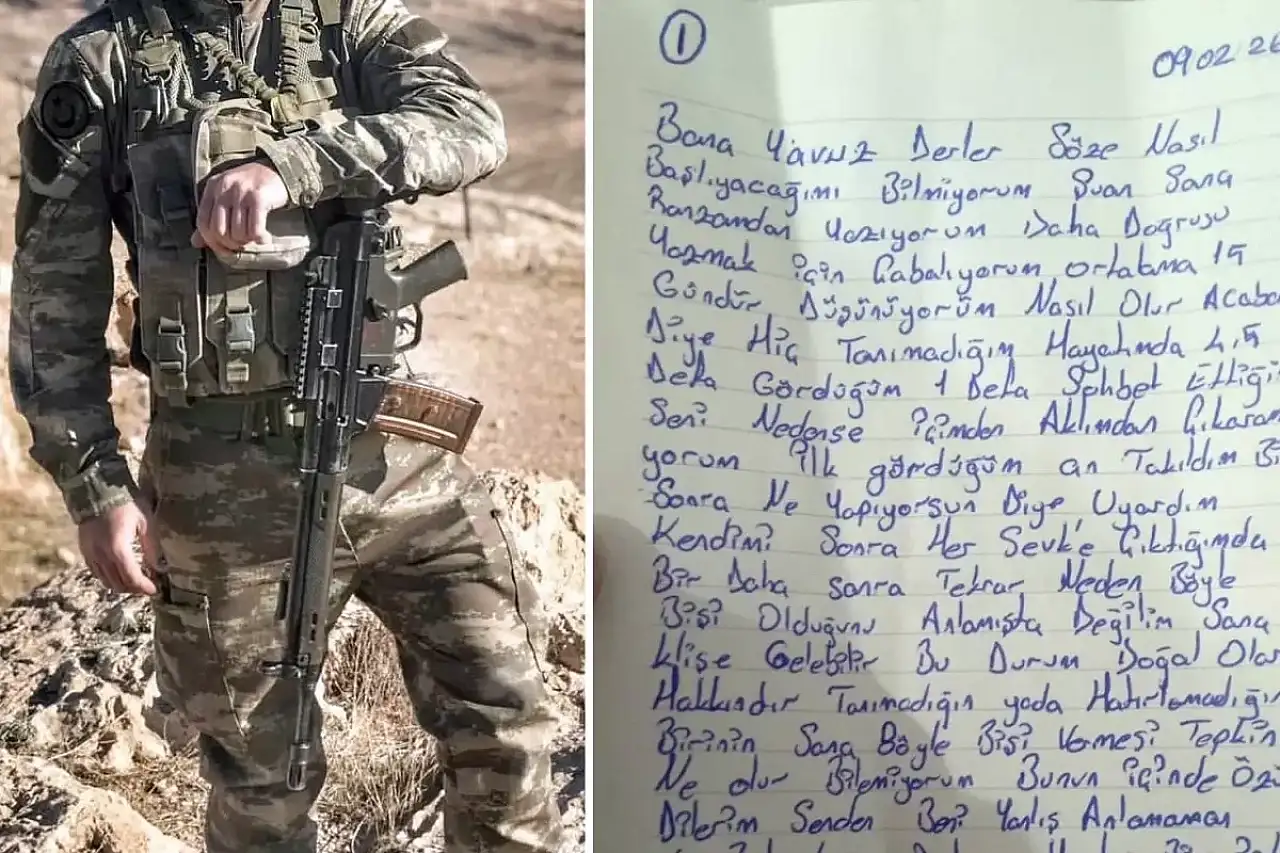 1
09.02.26
Bana Yavuz Derler Söze Nasıl
Başlıyacağımı Bilmiyorum Şuan Sana
Ranzamdan Yazıyorum Daha Doğrusu
Yazmak için Çabalıyorum ortalama 15
Gündür Düşünüyorum Nasıl Olur Acaba
Diye Hiç Tanımadığım Hayatımda 4,5
Defa Gördüğüm 1 Defa Sohbet Ettiği
Seni Nedense içimden Aklımdan Çıkaram
yorum ilk gördüğüm an Takıldım Bi
Sonra Ne Yapıyorsun Diye Uyardım
Kendimi Sonra Her Sevk'e Çıktığımda
Bir Daha sonra Tekrar Neden Böyle
Bişi Olduğunu Anlamışta Değilim Sana
Klişe Gelebilir Bu Durum Doğal Olar
Hakkındır Tanımadığın yada Hatırlamadığın
Birinin Sana Böyle Bişi Vermesi Tepkin
Ne olur Bilemiyorum Bunun içinde Özü
Dilerim Senden Beni Yanlış Anlamaman